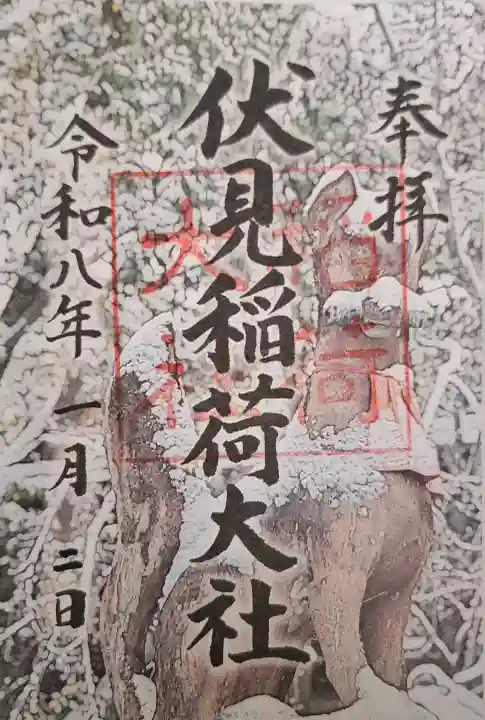 奉拝
伏見稲荷大社
令和八年 一月 二日
稲荷
大社